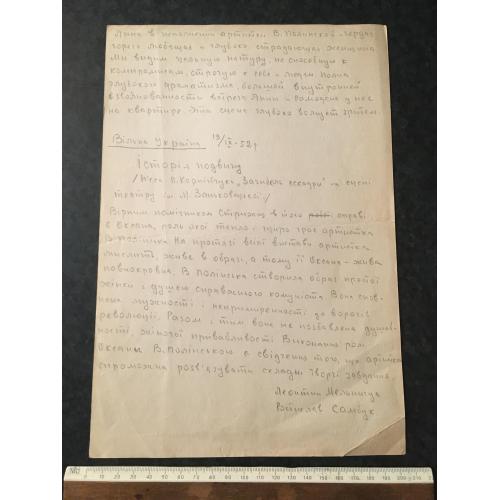 Анна в исполнении артистки В. Полинской - гордая
горячо любящая и глубоко страдающая женщина
Мы видим цельную натуру, не способную к
компромиссам, строгую к себе и людям. Полна
глубокого драматизма, большой внутренней
взволнованности встреча Анны и у нее
на квартире. Эта сцена глубоко волнует зрителя.
Вільна Україна 19/IX-52 р
Історія подвигу
/П'єса О. Корнійчука "Загибель ескадри" на сцені
театру ім М. Заньковецької/
Вірним помічником Стрижня в його справі
є Оксана, роль якої тепло і щиро грає артистка
В Полінська На протязі всієї вистави артистка
мислить, живе в образі, а тому її Оксана - жива
повнокровна. В Полінська створила образ простої
жінки з душею справжнього комуніста Вона спов-
нена мужності і непримиренності до ворогів
революції. Разом з тим вона не позбавлена душев-
ності, жіночої привабливості Виконання ролі
Оксани В. Полінською є свідченням того, що артистка
спроможна розв'язувати складні творчі завдання.
Леонтина Мельничук
Ростислав Самбук